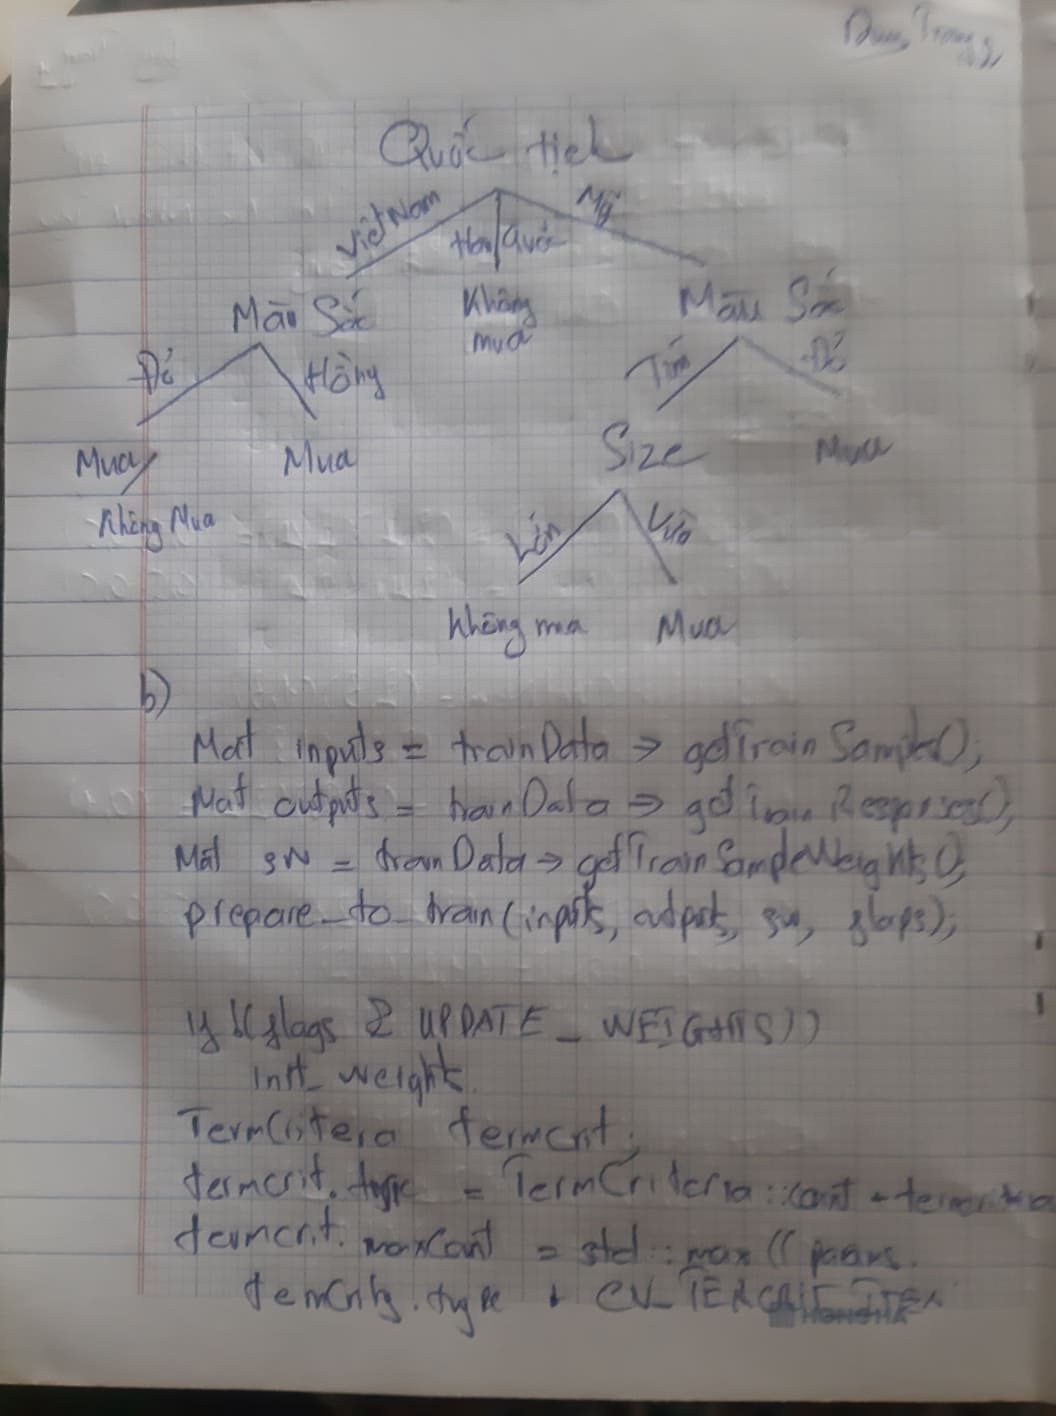 Quốc tịch
Việt Nam
Hàn Quốc
Mỹ
Màu Sắc
Không
mua
Màu Sắc
Đỏ
Hồng
Tím
Đỏ
Mua
Mua
Size
Mua
Không Mua
Lớn
Vừa
Không mua
Mua
b)
Mat inputs = trainData → getTrainSamples();
Mat outputs = trainData → getTrainResponses();
Mat sw = trainData → getTrainSampleWeights();
prepare_to_train(inputs, outputs, sw, flags);
if !(flags & UPDATE_WEIGHTS))
init_weights
TermCriteria termcrit;
termcrit.type = TermCriteria::count +
termcrit.maxCount = std::max((params.
termCrit.type + CV_TERCRIT_ITER